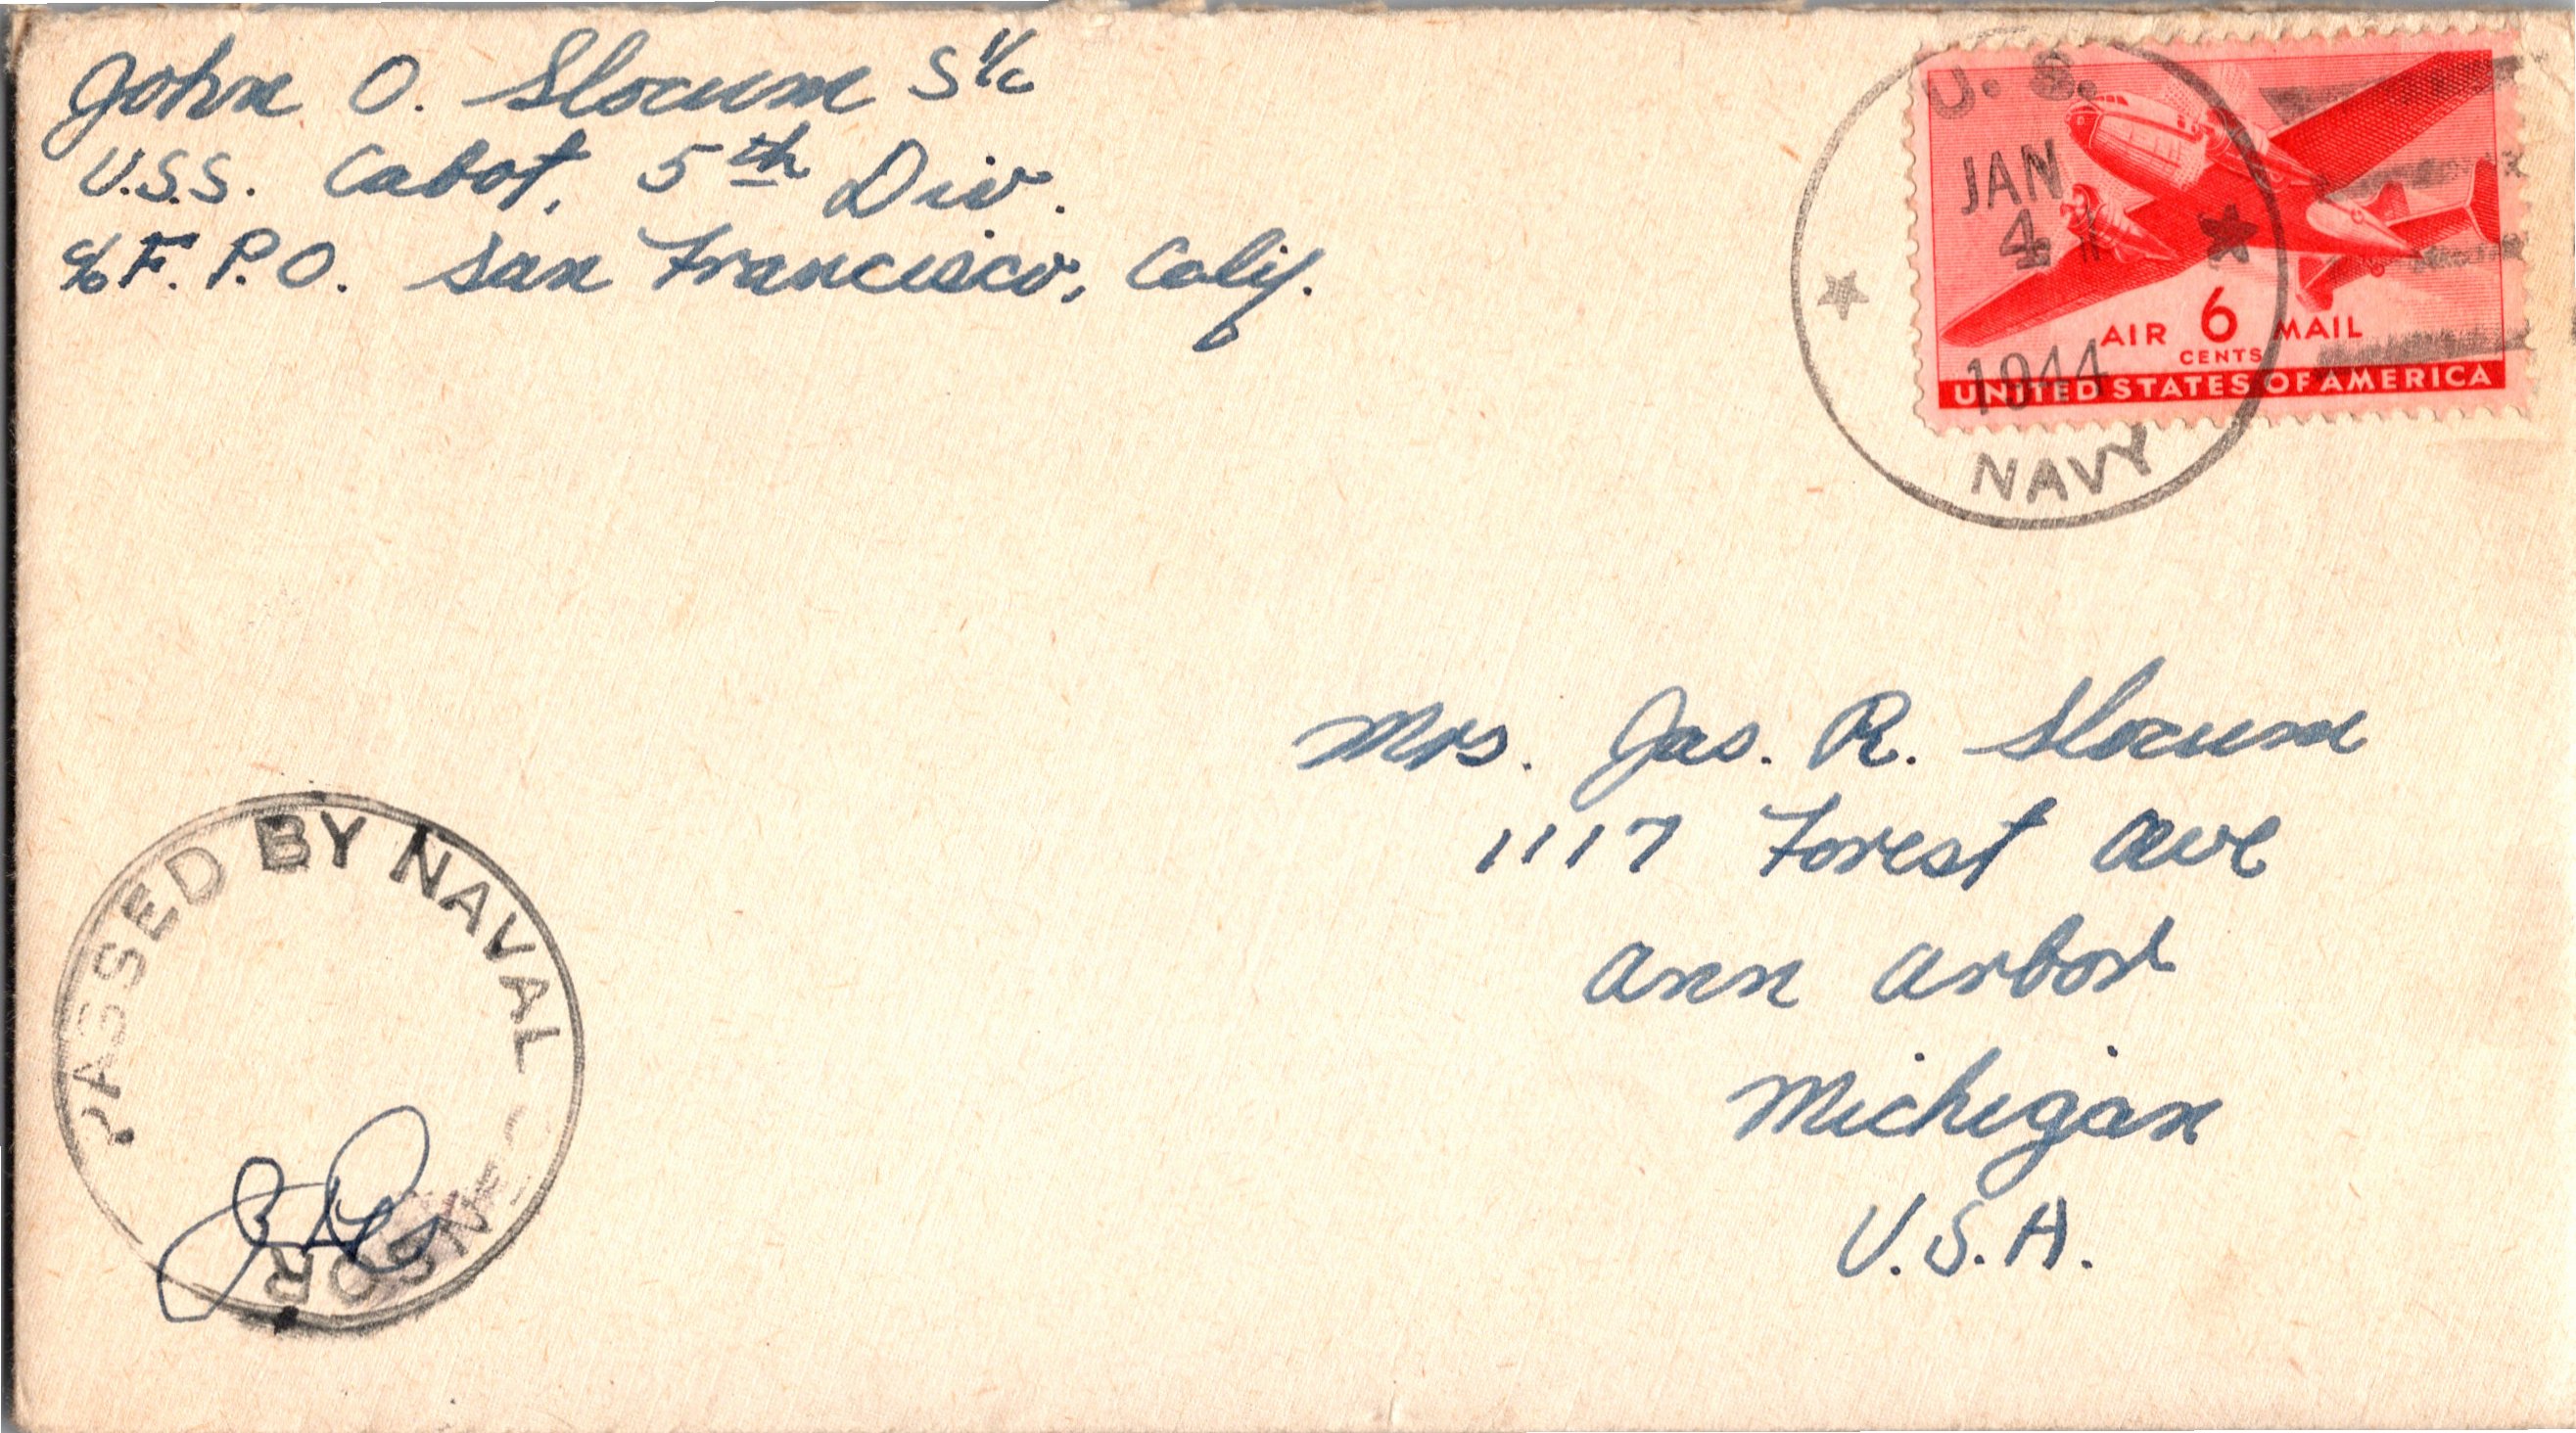 John O. Slocum S 1/c
U.S.S. Cabot, 5th Div.
c/o F.P.O. San Francisco, Calif.
U. S.
JAN
4
1944
NAVY
AIR 6 MAIL
CENTS
UNITED STATES OF AMERICA
Mrs. Jas. R. Slocum
1117 Forest Ave
Ann Arbor
Michigan
U.S.A.
PASSED BY NAVAL CENSOR